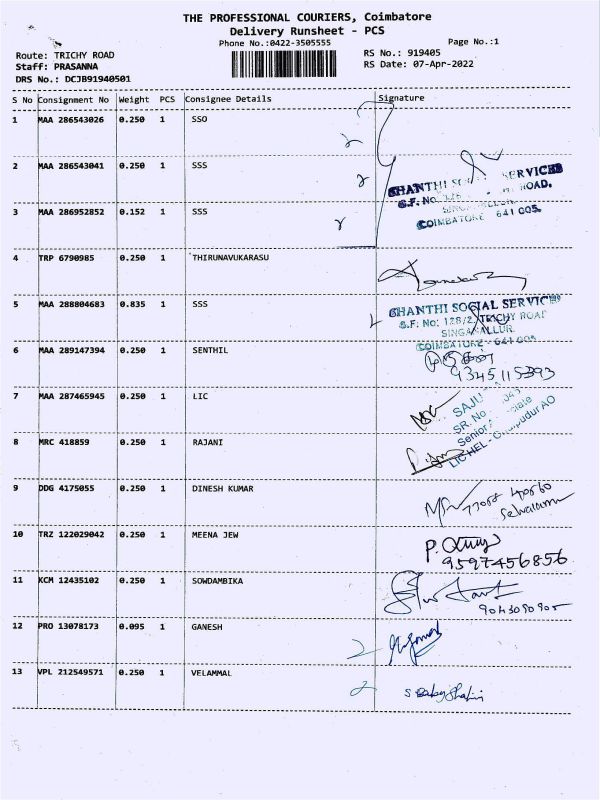 THE PROFESSIONAL COURIERS, Coimbatore
Delivery Runsheet - PCS
Phone No.:0422-3505555
Page No.:1
Route: TRICHY ROAD
RS No.: 919405
Staff: PRASANNA
RS Date: 07-Apr-2022
DRS No.: DCJB91940501
S No Consignment No Weight PCS Consignee Details Signature
1 MAA 286543026 0.250 1 SSO
2 MAA 286543041 0.250 1 SSS
SHANTHI SERVICES
ROAD.
S.F. No.
3 MAA 286952852 0.152 1 SSS
COIMBATORE 641 005.
4 TRP 6790985 0.250 1 THIRUNAVUKARASU
5 MAA 288804683 0.835 1 SSS
SHANTHI SOCIAL SERVICES
S.F. No: 128/2, TRICHY ROAD
SINGANALLUR,
COIMBATORE - 641 005
6 MAA 289147394 0.250 1 SENTHIL
9345115393
7 MAA 287465945 0.250 1 LIC
SAJU
SR. No
Senior Associate
LIC HFL -
8 MRC 418859 0.250 1 RAJANI
9 DDG 4175055 0.250 1 DINESH KUMAR
10 TRZ 122029042 0.250 1 MEENA JEW
P.
9597456856
11 KCM 12435102 0.250 1 SOWDAMBIKA
9043090905
12 PRO 13078173 0.095 1 GANESH
13 VPL 212549571 0.250 1 VELAMMAL